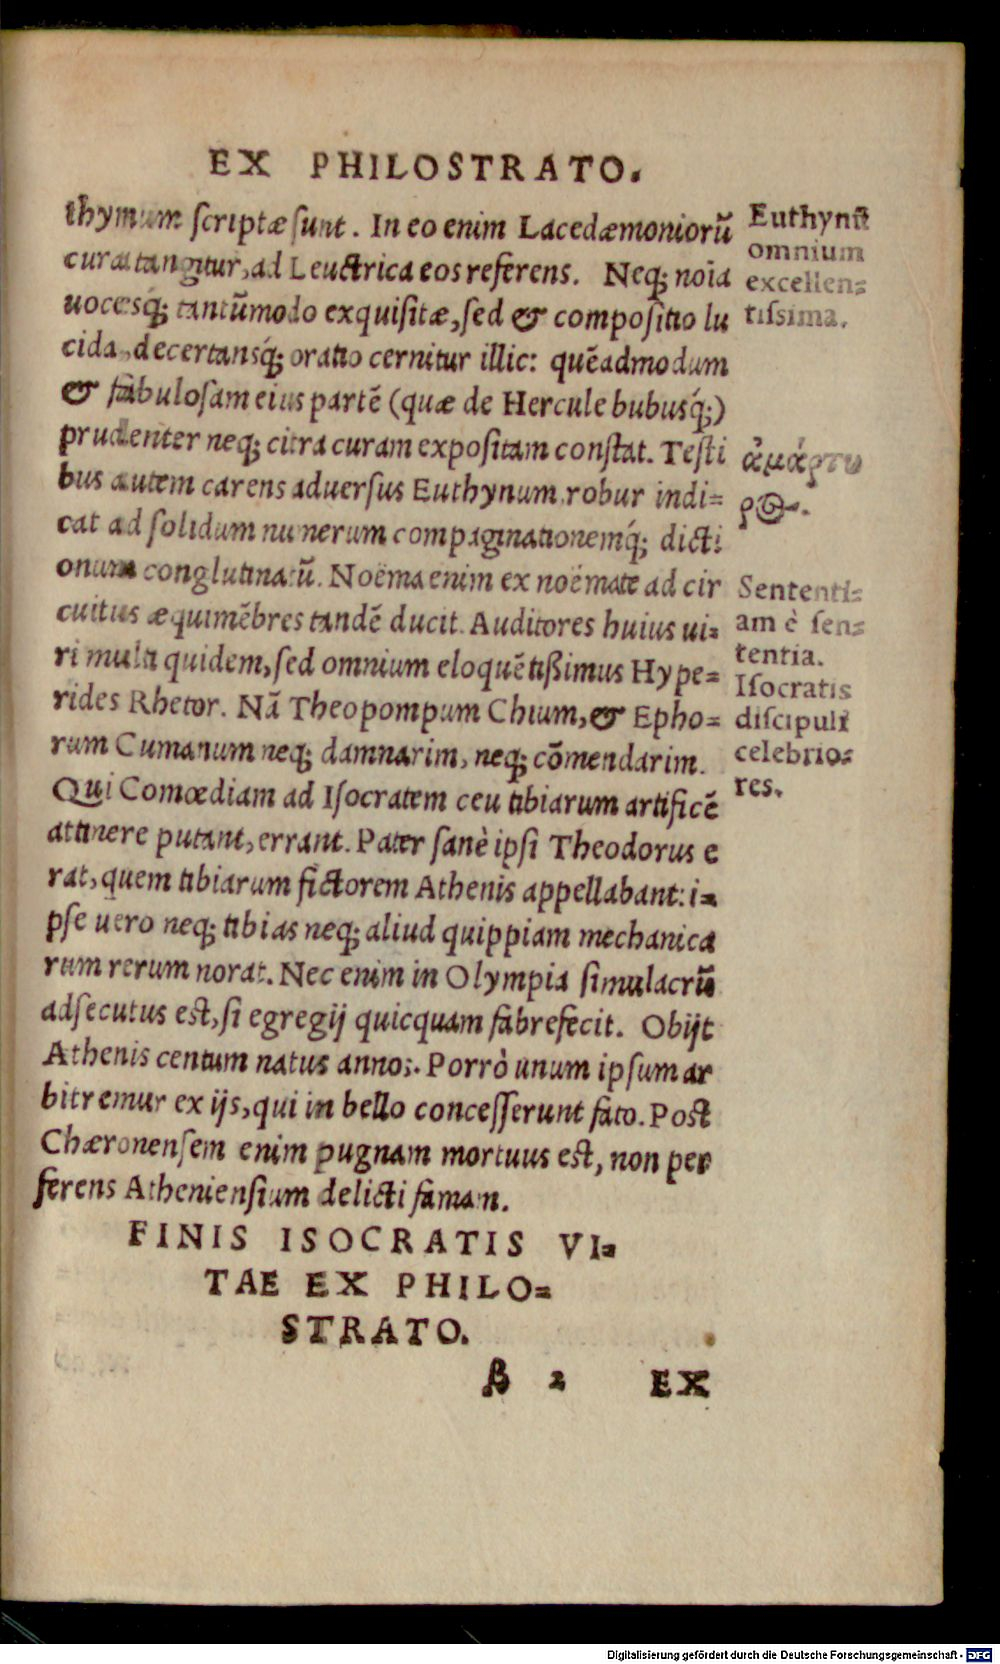 EX PHILOSTRATO.
thymum scriptæ sunt. In eo enim Lacedæmoniorũ
cura tangitur, ad Leuctrica eos referens. Neq; noĩa
uocesq́; tantũmodo exquisitæ, sed & compositio lu
cida, decertansq́; oratio cernitur illic: quẽadmodum
& fabulosam eius partẽ (quæ de Hercule bubusq́;)
prudenter neq; citra curam expositam constat. Testi
bus autem carens aduersus Euthynum robur indi=
cat ad solidum numerum compaginationemq́; dicti
onum conglutinatũ. Noëma enim ex noëmate ad cir
cuitus æquimẽbres tandẽ ducit. Auditores huius ui=
ri multi quidem, sed omnium eloquẽtißimus Hype=
rides Rhetor. Nã Theopompum Chium, & Epho=
rum Cumanum neq; damnarim, neq; cõmendarim.
Qui Comœdiam ad Isocratem ceu tibiarum artificẽ
attinere putant, errant. Pater sanè ipsi Theodorus e
rat, quem tibiarum fictorem Athenis appellabant: i=
pse uero neq; tibias neq; aliud quippiam mechanica
rum rerum norat. Nec enim in Olympia simulacrũ
adsecutus est, si egregij quicquam fabrefecit. Obijt
Athenis centum natus annos. Porrò unum ipsum ar
bitremur ex ijs, qui in bello concesserunt fato. Post
Chæronensem enim pugnam mortuus est, non per
ferens Atheniensium delicti famam.
FINIS ISOCRATIS VI=
TAE EX PHILO=
STRATO.
β 2 EX
Euthynũ
omnium
excellen=
tissima.
ἀμάρτυ
ρος.
Sententi=
am è sen=
tentia.
Isocratis
discipuli
celebrio=
res.
Digitalisierung gefördert durch die Deutsche Forschungsgemeinschaft - DFG